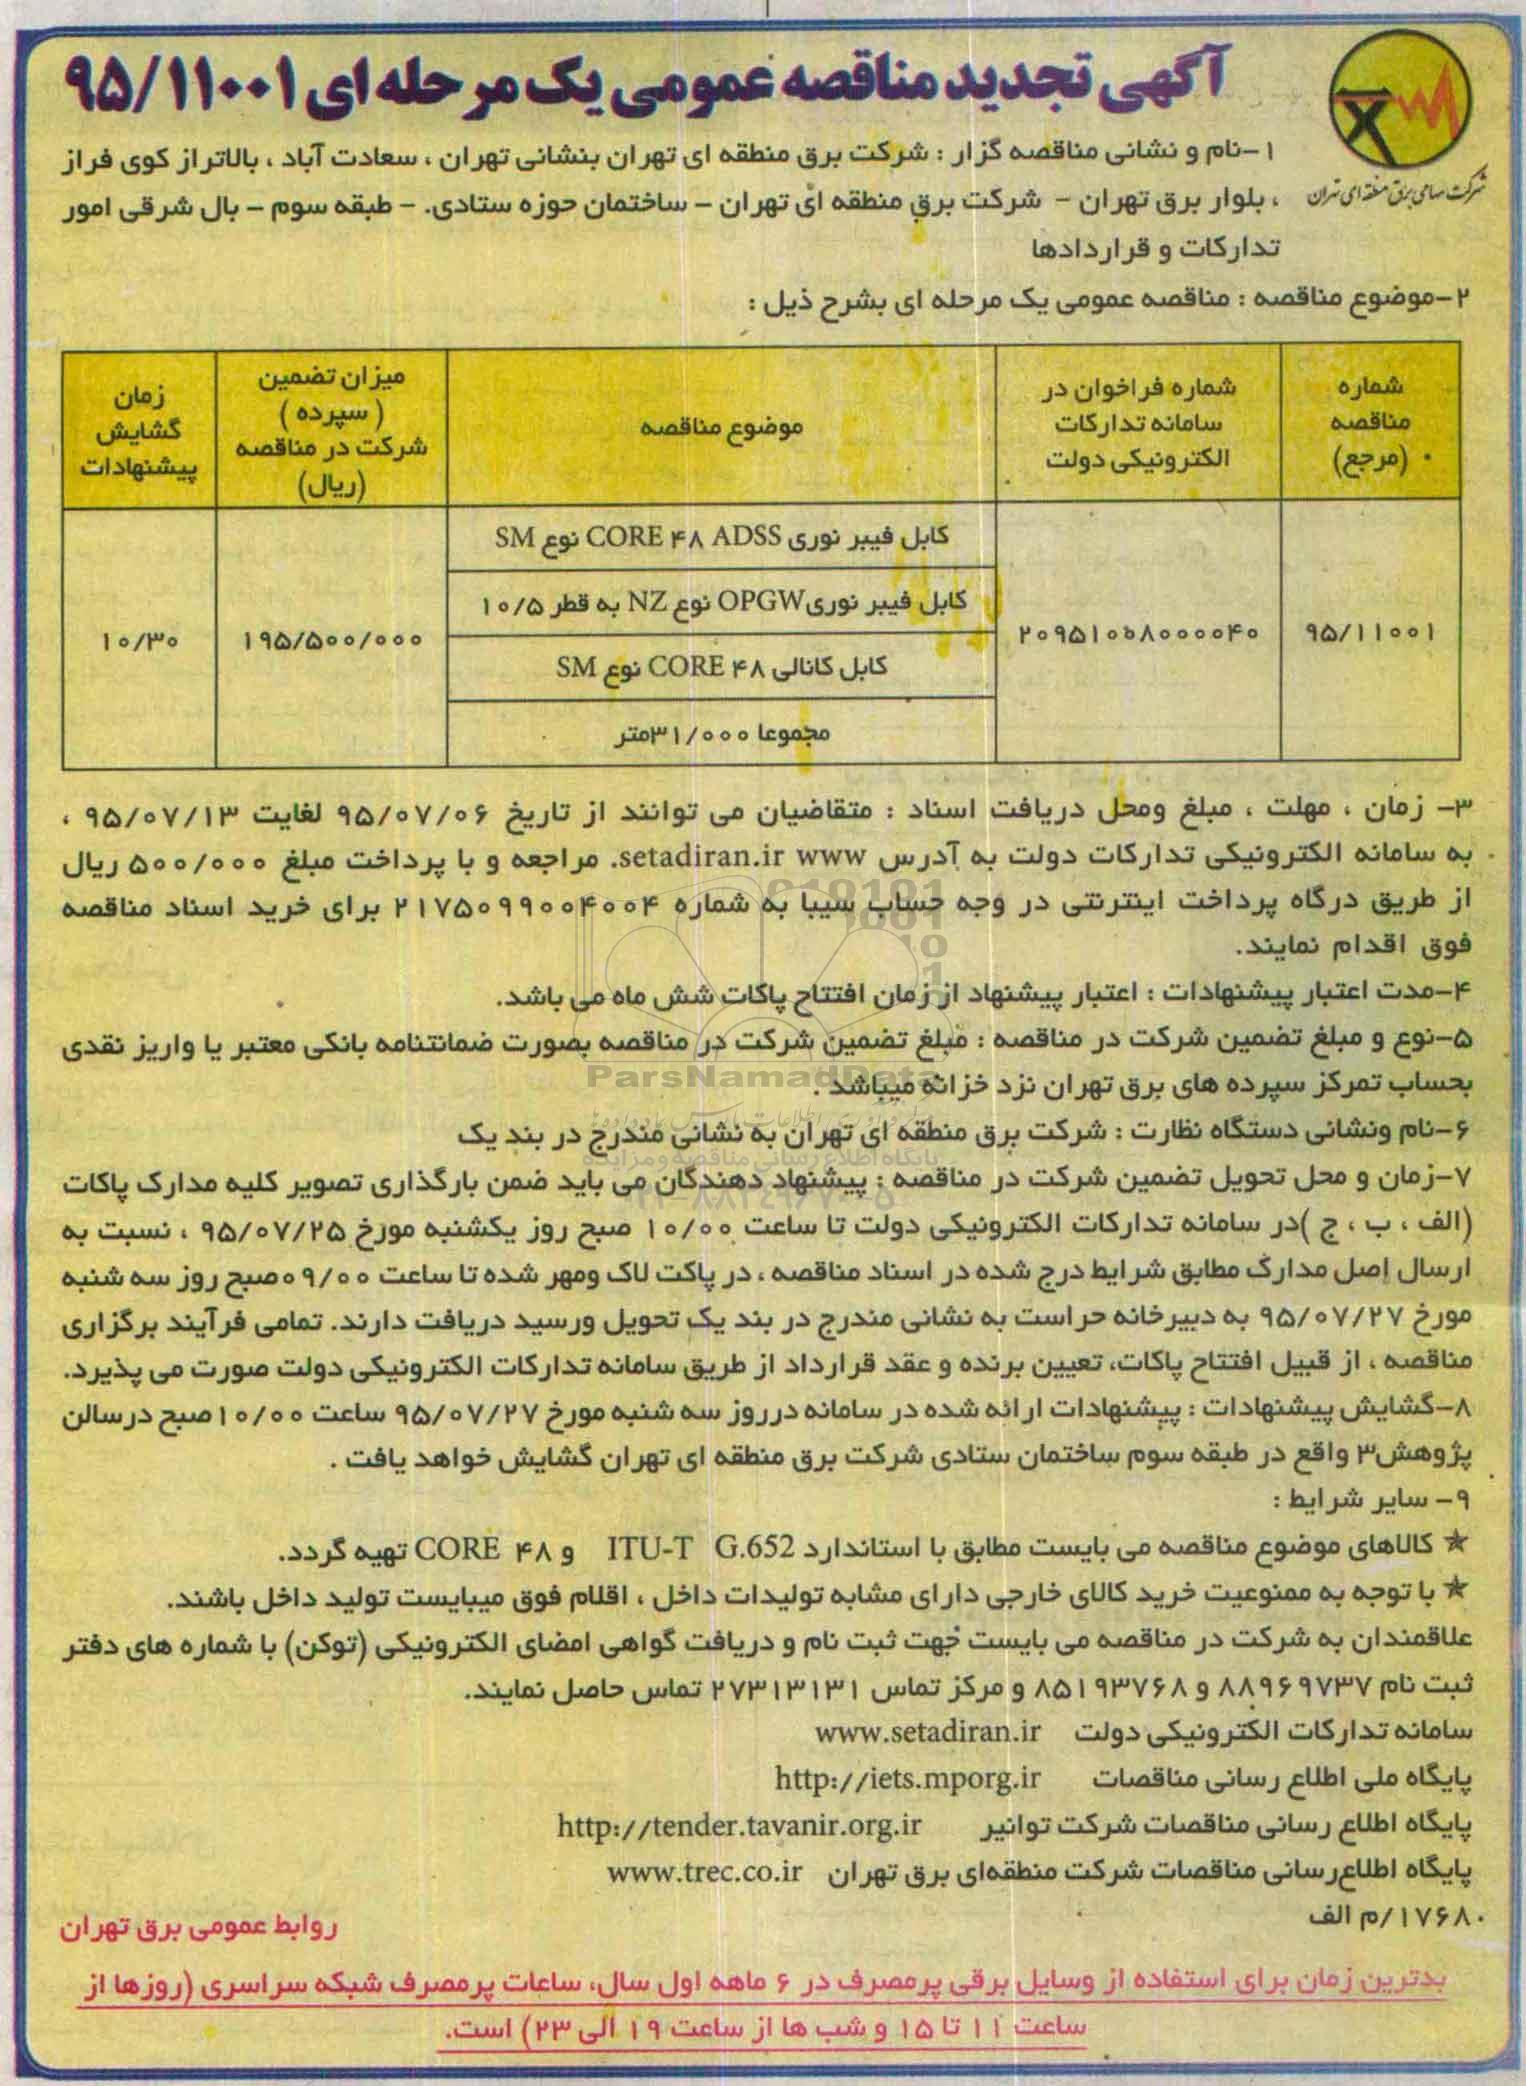 آگهی تجدید مناقصه عمومی یک مرحله ای ۹۵/۱۱۰۰۱
شرکت سهامی برق منطقه ای تهران
۱-نام و نشانی مناقصه گزار : شرکت برق منطقه ای تهران بنشانی تهران ، سعادت آباد ، بالاتراز کوی فراز
، بلوار برق تهران - شرکت برق منطقه ای تهران – ساختمان حوزه ستادی. - طبقه سوم – بال شرقی امور
تدارکات و قراردادها
۲-موضوع مناقصه : مناقصه عمومی یک مرحله ای بشرح ذیل :
شماره
مناقصه
(مرجع)
شماره فراخوان در
سامانه تدارکات
الکترونیکی دولت
موضوع مناقصه
میزان تضمین
( سپرده )
شرکت در مناقصه
(ریال)
زمان
گشایش
پیشنهادات
۹۵/۱۱۰۰۱
۲۰۹۵۱۰۵۸۰۰۰۰۴۰
کابل فیبر نوری CORE ۴۸ ADSS نوع SM
کابل فیبر نوری OPGW نوع NZ به قطر ۱۰/۵
کابل کانالی CORE ۴۸ نوع SM
مجموعا ۳۱/۰۰۰متر
۱۹۵/۵۰۰/۰۰۰
۱۰/۳۰
۳- زمان ، مهلت ، مبلغ ومحل دریافت اسناد : متقاضیان می توانند از تاریخ ۹۵/۰۷/۰۶ لغایت ۹۵/۰۷/۱۳ ،
به سامانه الکترونیکی تدارکات دولت به آدرس setadiran.ir www. مراجعه و با پرداخت مبلغ ۵۰۰/۰۰۰ ریال
از طریق درگاه پرداخت اینترنتی در وجه حساب سیبا به شماره ۲۱۷۵۰۹۹۰۰۴۰۰۴ برای خرید اسناد مناقصه
فوق اقدام نمایند.
۴-مدت اعتبار پیشنهادات : اعتبار پیشنهاد از زمان افتتاح پاکات شش ماه می باشد.
۵-نوع و مبلغ تضمین شرکت در مناقصه : مبلغ تضمین شرکت در مناقصه بصورت ضمانتنامه بانکی معتبر یا واریز نقدی
ParsNamadData
بحساب تمرکز سپرده های برق تهران نزد خزانه میباشد .
۶-نام ونشانی دستگاه نظارت : شرکت برق منطقه ای تهران به نشانی مندرج در بند یک
پایگاه اطلاع رسانی مناقصه و مزایده
۷-زمان و محل تحویل تضمین شرکت در مناقصه : پیشنهاد دهندگان می باید ضمن بارگذاری تصویر کلیه مدارک پاکات
(الف ، ب ، ج )در سامانه تدارکات الکترونیکی دولت تا ساعت ۱۰/۰۰ صبح روز یکشنبه مورخ ۹۵/۰۷/۲۵ ، نسبت به
ارسال اصل مدارک مطابق شرایط درج شده در اسناد مناقصه ، در پاکت لاک ومهر شده تا ساعت ۰۹/۰۰صبح روز سه شنبه
مورخ ۹۵/۰۷/۲۷ به دبیرخانه حراست به نشانی مندرج در بند یک تحویل ورسید دریافت دارند. تمامی فرآیند برگزاری
مناقصه ، از قبیل افتتاح پاکات، تعیین برنده و عقد قرارداد از طریق سامانه تدارکات الکترونیکی دولت صورت می پذیرد.
۸-گشایش پیشنهادات : پیشنهادات ارائه شده در سامانه درروز سه شنبه مورخ ۹۵/۰۷/۲۷ ساعت ۱۰/۰۰صبح درسالن
پژوهش۳ واقع در طبقه سوم ساختمان ستادی شرکت برق منطقه ای تهران گشایش خواهد یافت .
۹- سایر شرایط :
★ کالاهای موضوع مناقصه می بایست مطابق با استاندارد ITU-T G.652 و CORE ۴۸ تهیه گردد.
★ با توجه به ممنوعیت خرید کالای خارجی دارای مشابه تولیدات داخل ، اقلام فوق میبایست تولید داخل باشند.
علاقمندان به شرکت در مناقصه می بایست جهت ثبت نام و دریافت گواهی امضای الکترونیکی (توکن) با شماره های دفتر
ثبت نام ۸۸۹۶۹۷۳۷ و ۸۵۱۹۳۷۶۸ و مرکز تماس ۲۷۳۱۳۱۳۱ تماس حاصل نمایند.
سامانه تدارکات الکترونیکی دولت www.setadiran.ir
پایگاه ملی اطلاع رسانی مناقصات http://iets.mporg.ir
پایگاه اطلاع رسانی مناقصات شرکت توانیر http://tender.tavanir.org.ir
پایگاه اطلاع‌رسانی مناقصات شرکت منطقه‌ای برق تهران www.trec.co.ir
۱۷۶۸۰/م الف
روابط عمومی برق تهران
بدترین زمان برای استفاده از وسایل برقی پرمصرف در ۶ ماهه اول سال، ساعات پرمصرف شبکه سراسری (روزها از
ساعت ۱۱ تا ۱۵ و شب ها از ساعت ۱۹ الی ۲۳) است.